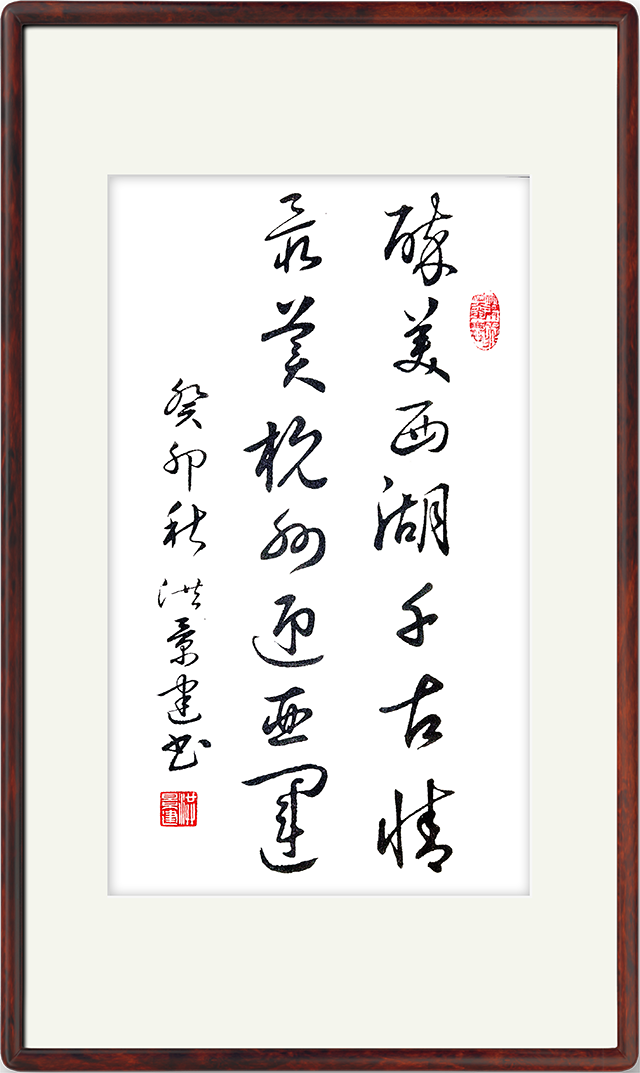 醉美西湖千古情
最美杭州迎亚運
癸卯秋洪景建书
洪景建